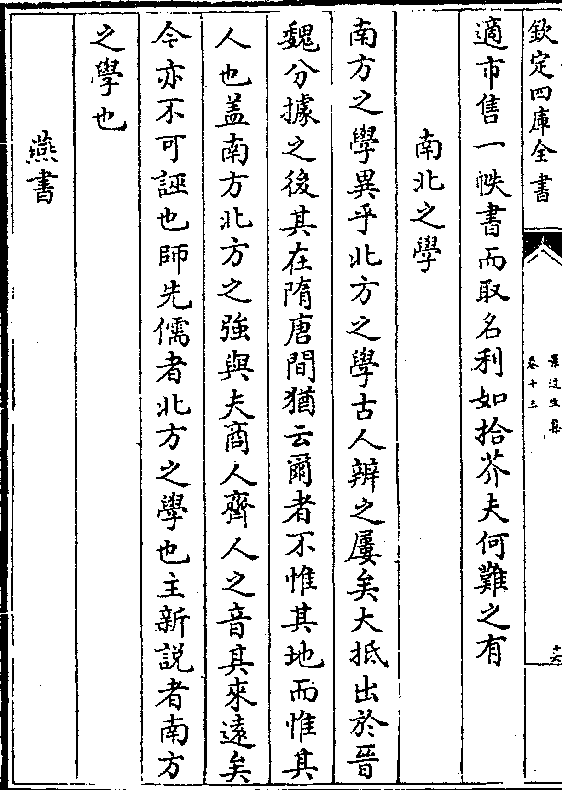 欽定四庫全書
景迂生集
卷十三
十六
適市售一帙書而取名利如拾芥夫何難之有
南北之學
南方之學異乎北方之學古人辨之屢矣大抵出於晉
魏分據之後其在隋唐間猶云爾者不惟其地而惟其
人也盖南方北方之強與夫商人齊人之音其來遠矣
今亦不可誣也師先儒者北方之學也主新説者南方
之學也
燕書